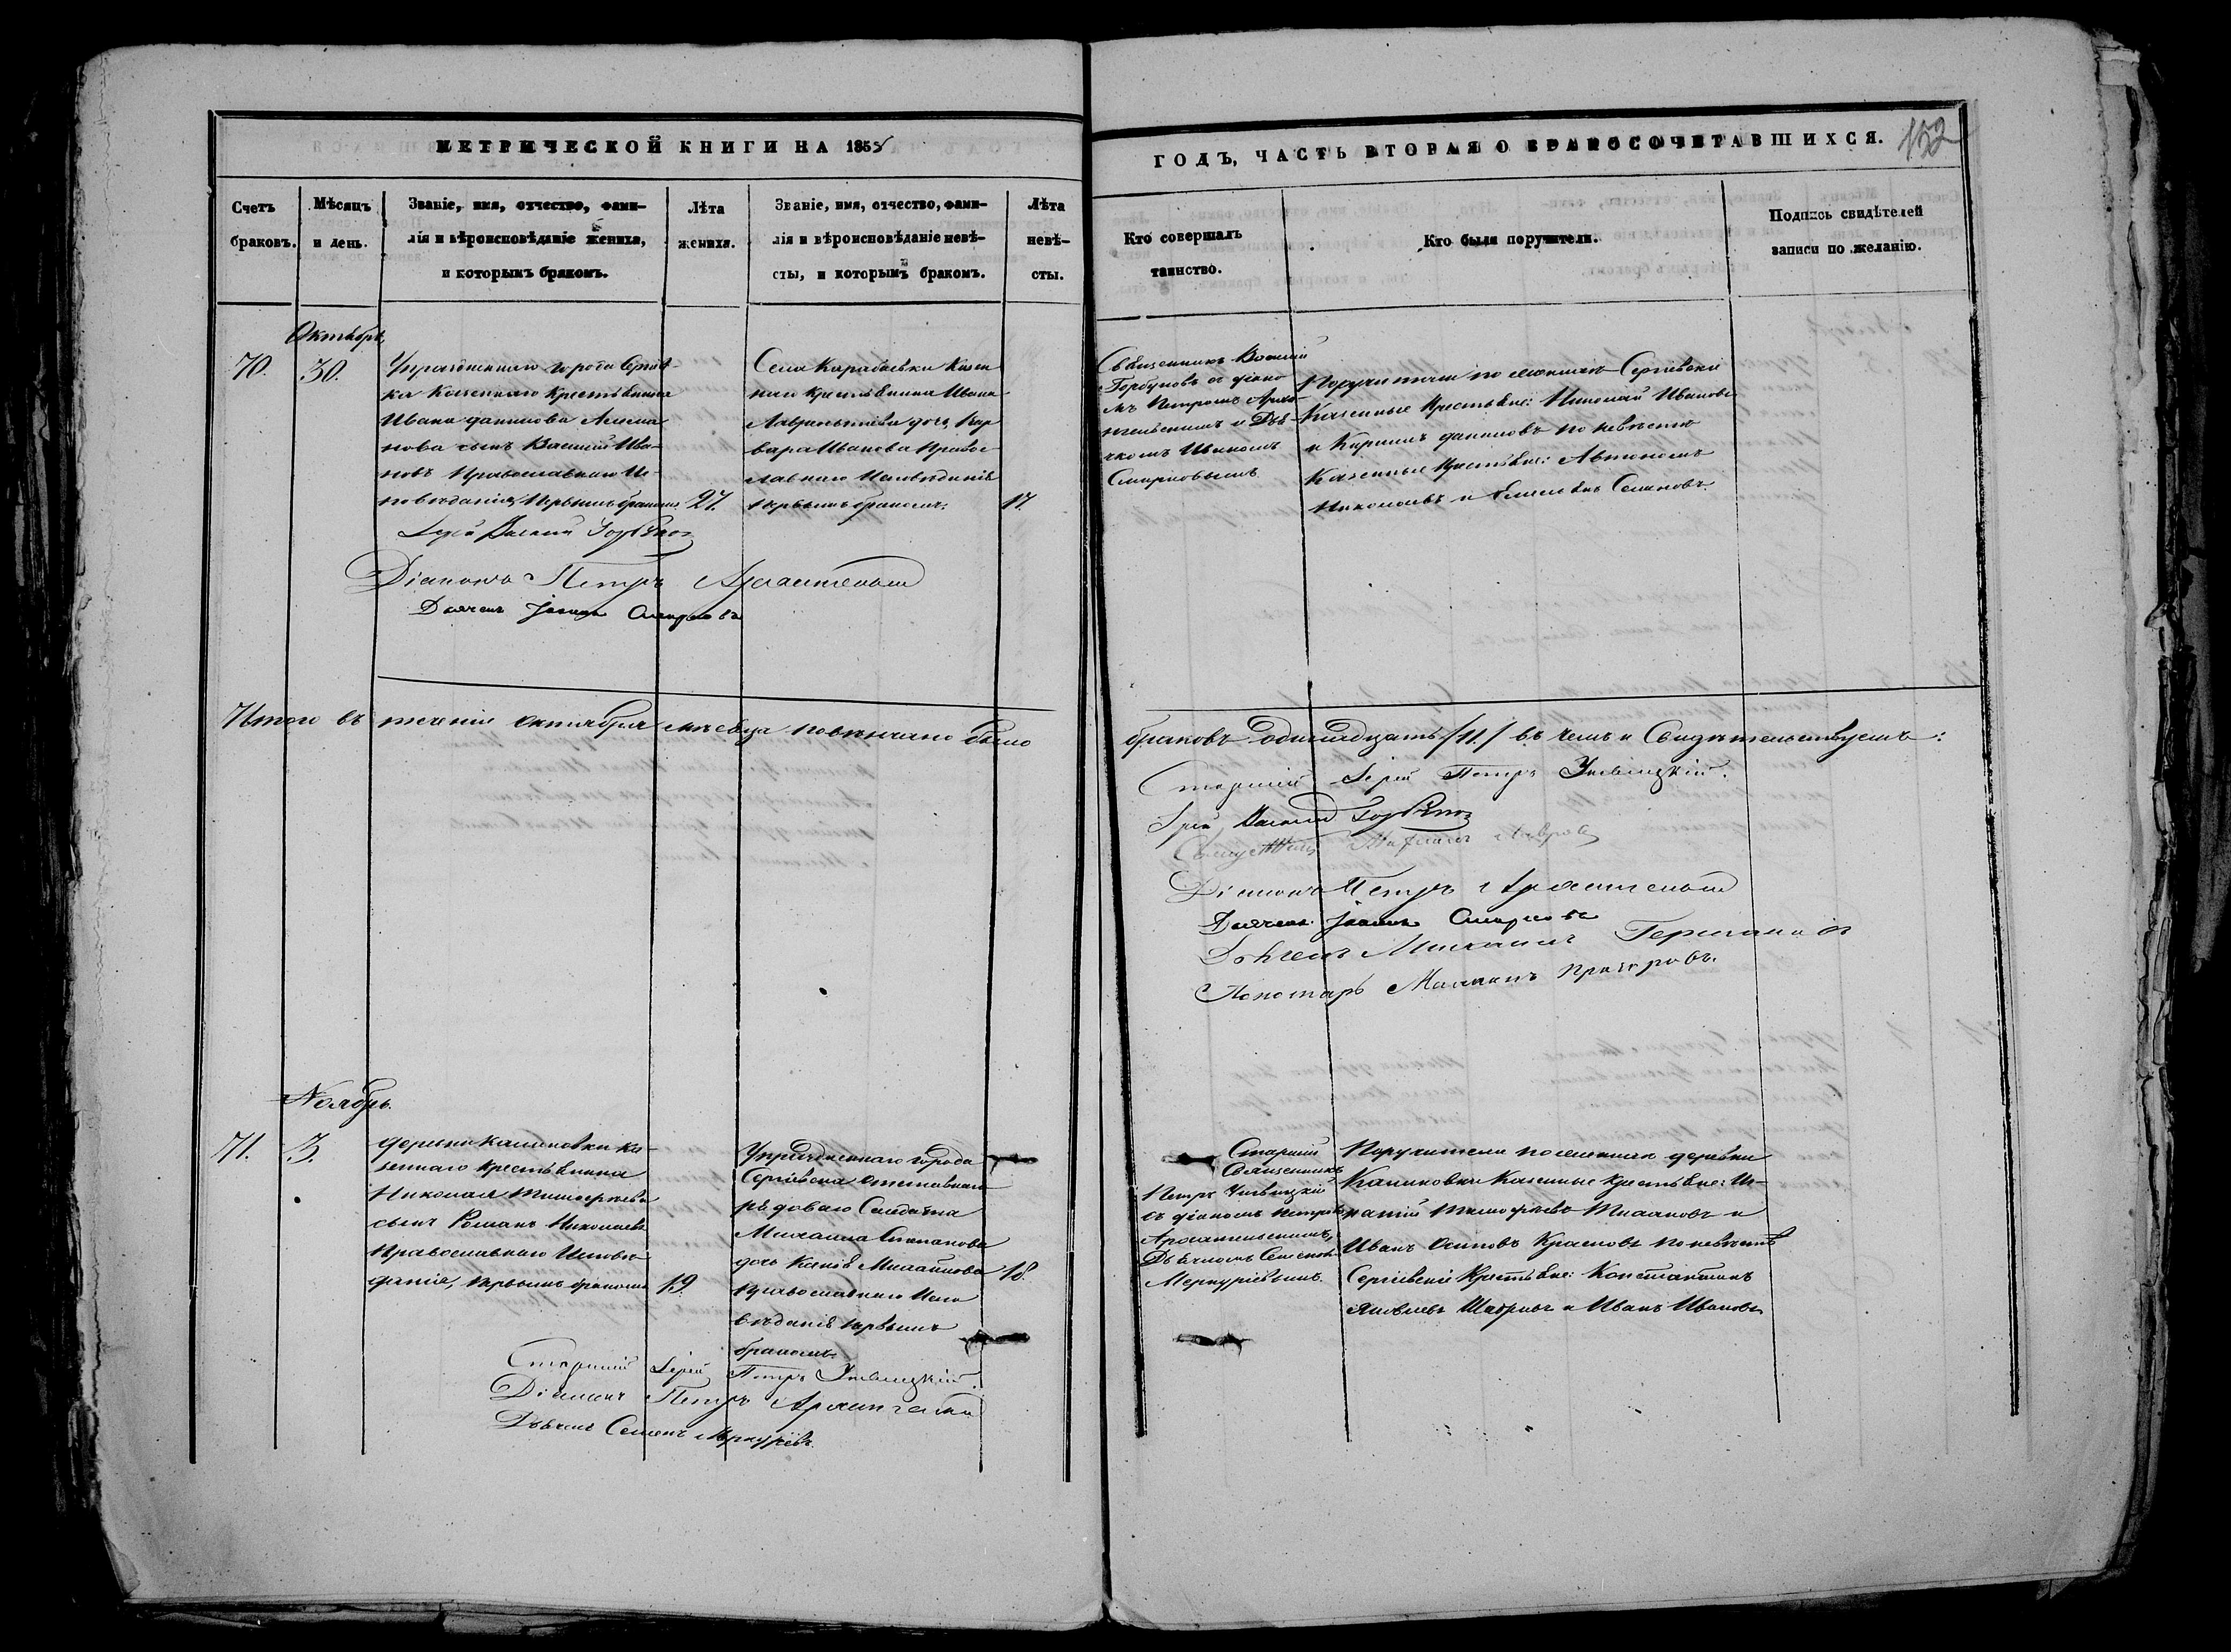 МЕТРИЧЕСКОЙ КНИГИ НА 1855
ГОДЪ, ЧАСТЬ ВТОРАЯ О БРАКОСОЧЕТАВШИХСЯ.
152
Счетъ браковъ.
Мѣсяцъ и день.
Званіе, имя, отчество, фами-
лія и вѣроисповѣданіе жениха,
и которымъ бракомъ.
Лѣта жениха.
Званіе, имя, отчество, фами-
лія и вѣроисповѣданіе невѣ-
сты, и которымъ бракомъ.
Лѣта невѣ-
сты.
Кто совершалъ
таинство.
Кто были поручители.
Подпись свидѣтелей
записи по желанію.
Октябрь
70.
30.
Упраздненнаго города Сергіев-
ка Казеннаго Крестьянина
Ивана Данилова
нова сынъ Василій Ива-
новъ Православнаго Ис-
повѣданія, первымъ бракомъ
27.
Села Карабаевки Казен
наго Крестьянина Ивана
Лаврентьева дочь Вар
вара Иванова Правос
лавнаго Исповѣданія
первымъ бракомъ.
17.
Священникъ Василій
Горбуновъ съ діако
мъ Петромъ Арха-
нгельскимъ и Дья-
чкомъ Иваномъ
Смирновымъ
Поручители по женихѣ Сергіевскіе
Казенные Крестьяне: Николай Ивановъ
и Кириллъ Даниловъ по невѣстѣ
Казенные Крестьяне: Автономъ
Николаевъ и Емельянъ Семеновъ.
Іерей Василій Горбуновъ
Діаконъ Петръ Архангельскій
Дьячекъ Іоаннъ Смирновъ
Итого въ теченіе октября мѣсяца повѣнчано было
браковъ одинадцать /11./ въ чемъ и Свидѣтельствуемъ:
Старшій Іерей Петръ Унгвицкій.
Іерей Василій Горбуновъ
Священникъ Лавровъ
Діаконъ Петръ Архангельскій
Дьячекъ Іоаннъ Смирновъ
Дьячекъ Михаилъ Германовъ
Пономарь
Ноябрь.
71.
3.
деревни Калиновки Ка-
зеннаго Крестьянина
Николая Тимофеева
сынъ Романъ Николаевъ
Православнаго Исповѣ-
данія, первымъ бракомъ
19.
Упраздненнаго города
Сергіевска отставнаго
рядоваго Солдата
Михаила Степанова
дочь Михайлова
православнаго Испо
вѣданія первымъ
бракомъ.
18.
Старшій
Священникъ
Петръ Унгвицкій
съ діакономъ Петромъ
Архангельскимъ,
Дьячкомъ Семеномъ
Меркурьевымъ.
Поручители по женихѣ деревни
Калиновки Казенные Крестьяне: Иг-
натій Тимофѣевъ и
Иванъ Осиповъ Красновъ по невѣстѣ
Сергіевскіе Крестьяне: Константинъ
Яковлевъ и Иванъ Ивановъ
Старшій Іерей Петръ Унгвицкій.
Діаконъ Петръ Архангельскій
Дьячекъ Семенъ Меркурьевъ.